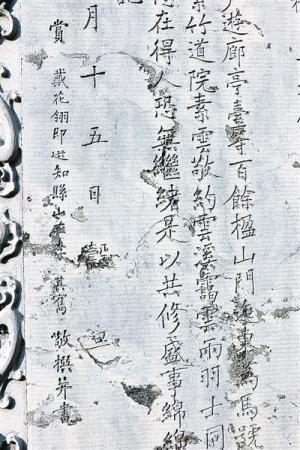 遊廊亭臺等百餘楹山門迤東為馬號
紫竹道院素雲敬約雲溪靄雲兩羽士同
在得人恐無繼緒是以共修盛事綿綿
月十五日
賞戴花翎即選知縣山 敬撰并書